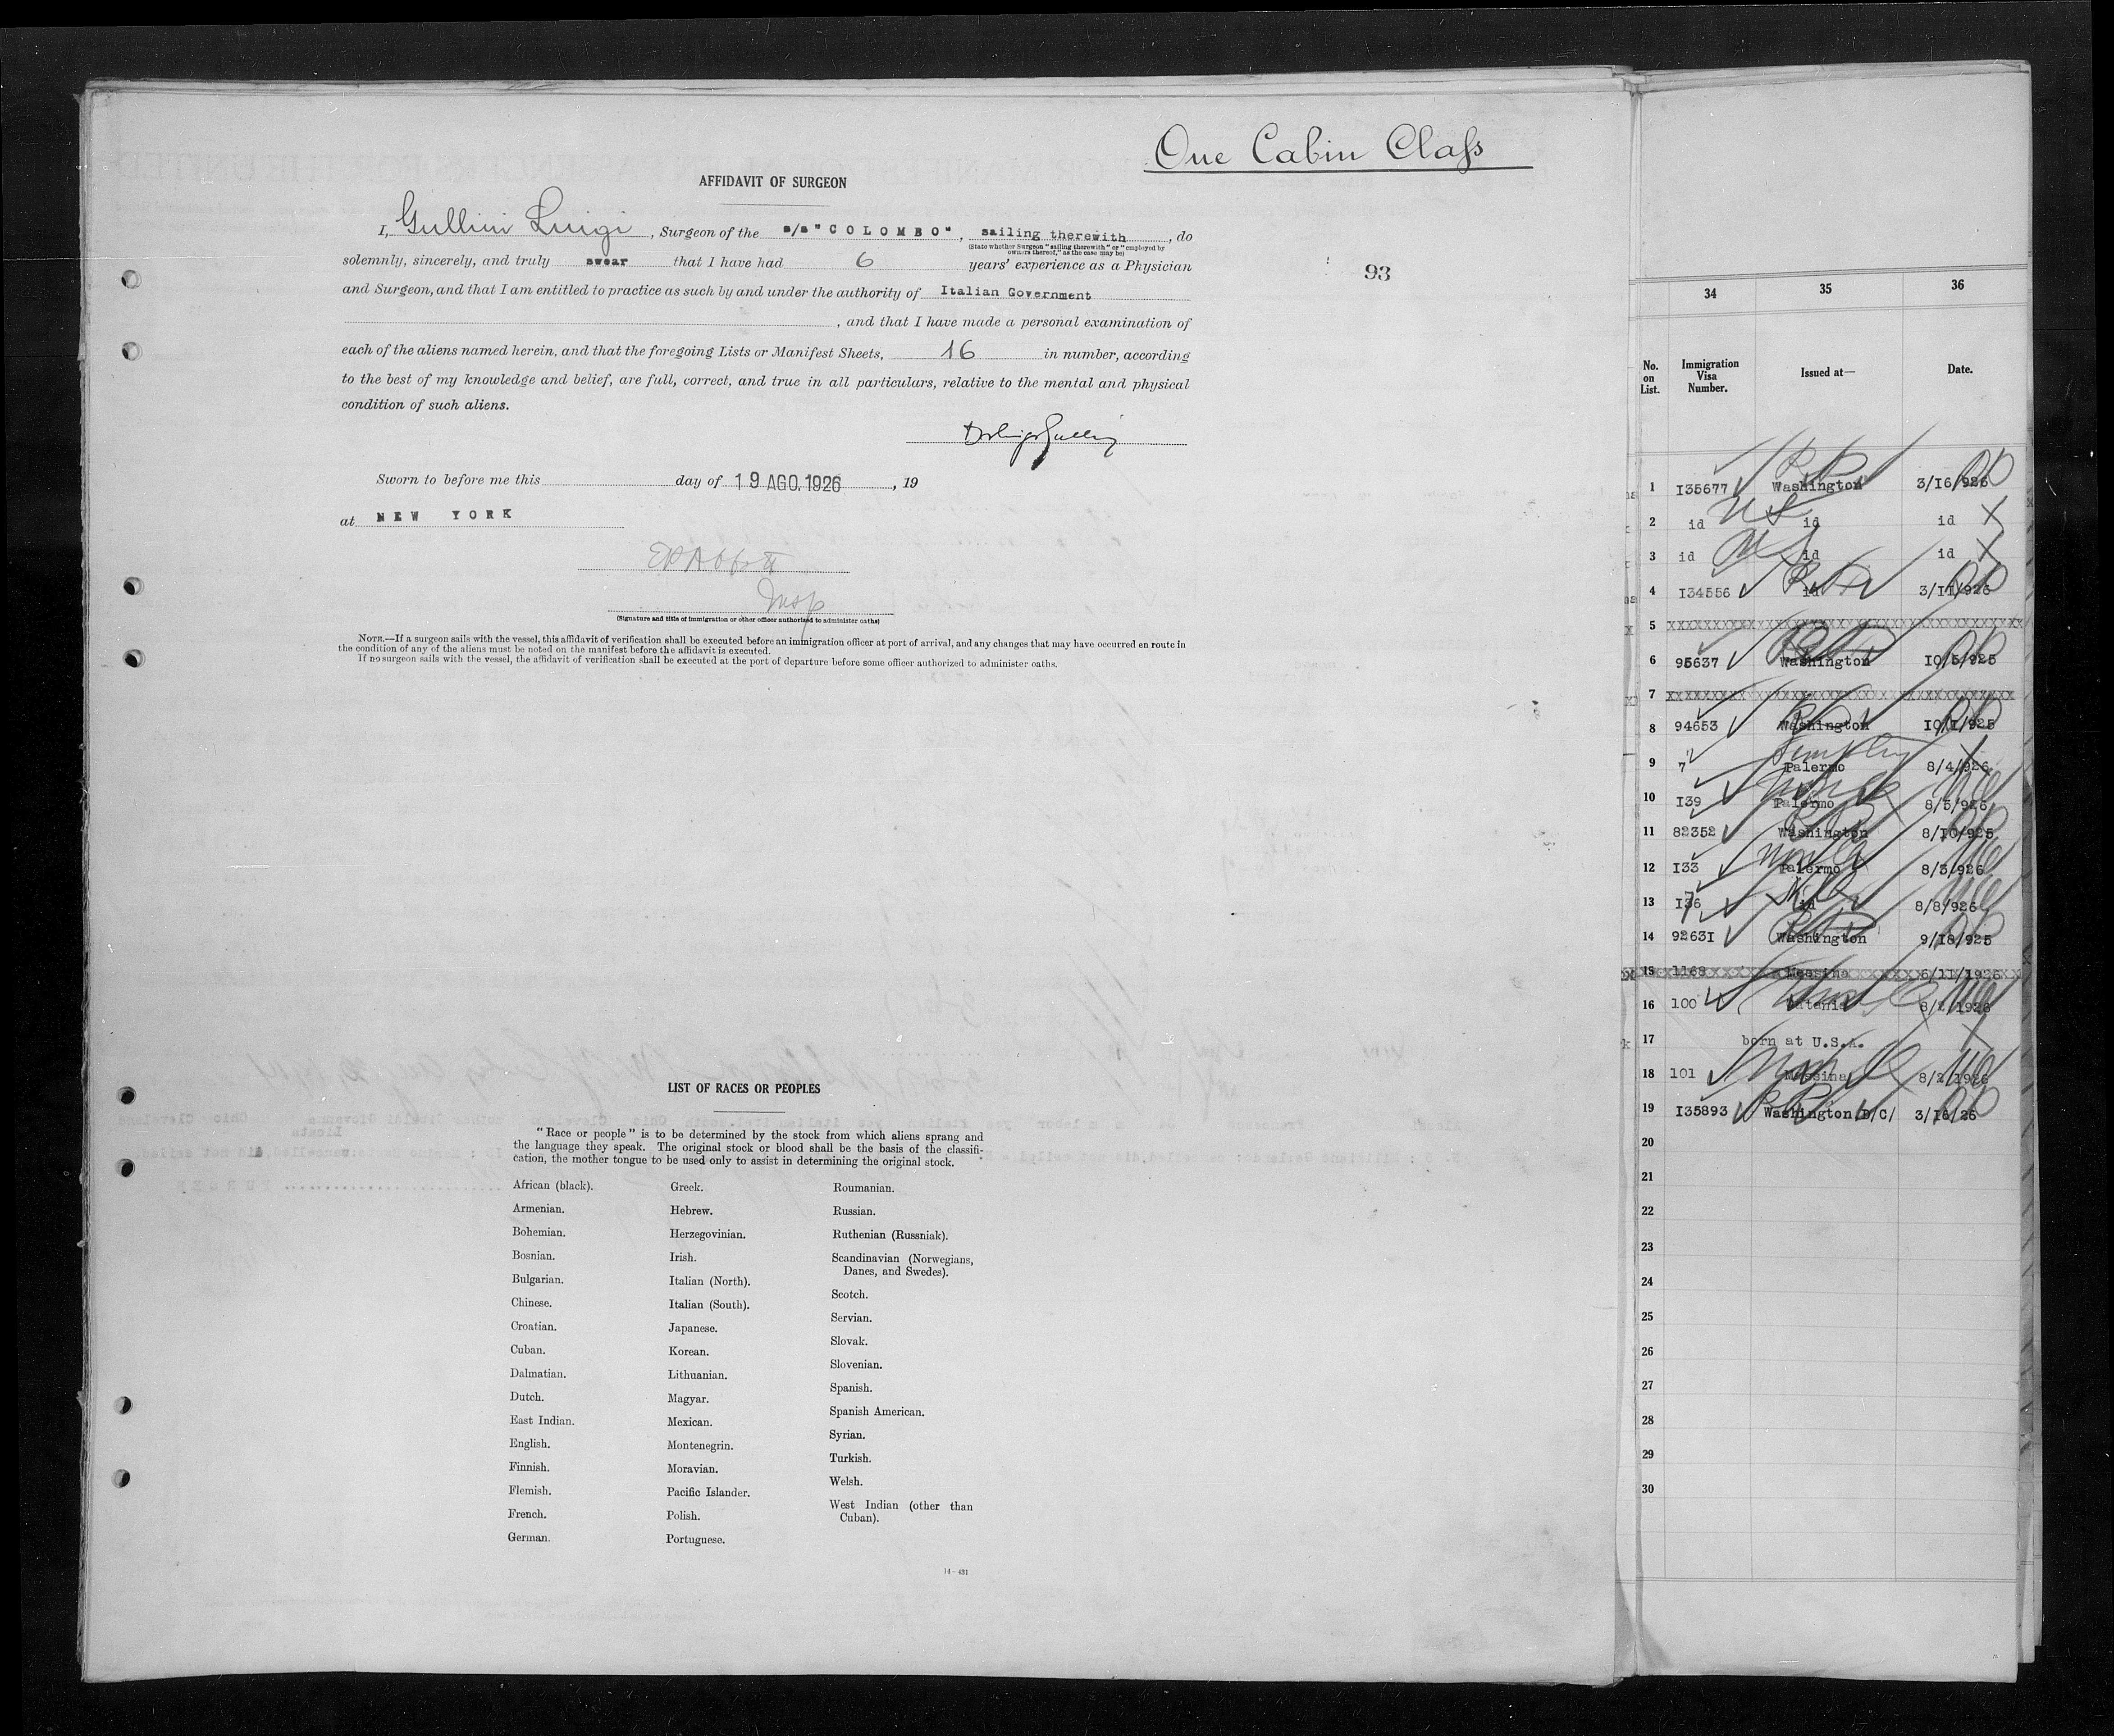 One Cabin Class
AFFIDAVIT OF SURGEON
I, Gullini Luigi, Surgeon of the s/s "COLOMBO", sailing therewith, do
(State whether Surgeon "sailing therewith" or "employed by
owners thereof," as the case may be)
solemnly, sincerely, and truly swear that I have had 6 years' experience as a Physician
93
and Surgeon, and that I am entitled to practice as such by and under the authority of Italian Government
, and that I have made a personal examination of
each of the aliens named herein, and that the foregoing Lists or Manifest Sheets, 16 in number, according
to the best of my knowledge and belief, are full, correct, and true in all particulars, relative to the mental and physical
condition of such aliens.
Sworn to before me this day of 19 AGO. 1926, 19
at NEW YORK
Insp
(Signature and title of immigration or other officer authorized to administer oaths)
NOTE.—If a surgeon sails with the vessel, this affidavit of verification shall be executed before an immigration officer at port of arrival, and any changes that may have occurred en route in
the condition of any of the aliens must be noted on the manifest before the affidavit is executed.
If no surgeon sails with the vessel, the affidavit of verification shall be executed at the port of departure before some officer authorized to administer oaths.
LIST OF RACES OR PEOPLES
"Race or people" is to be determined by the stock from which aliens sprang and
the language they speak. The original stock or blood shall be the basis of the classifi-
cation, the mother tongue to be used only to assist in determining the original stock.
African (black).
Armenian.
Bohemian.
Bosnian.
Bulgarian.
Chinese.
Croatian.
Cuban.
Dalmatian.
Dutch.
East Indian.
English.
Finnish.
Flemish.
French.
German.
Greek.
Hebrew.
Herzegovinian.
Irish.
Italian (North).
Italian (South).
Japanese.
Korean.
Lithuanian.
Magyar.
Mexican.
Montenegrin.
Moravian.
Pacific Islander.
Polish.
Portuguese.
Roumanian.
Russian.
Ruthenian (Russniak).
Scandinavian (Norwegians,
Danes, and Swedes).
Scotch.
Servian.
Slovak.
Slovenian.
Spanish.
Spanish American.
Syrian.
Turkish.
Welsh.
West Indian (other than
Cuban).
14—431
34 35 36
No. on List. Immigration Visa Number. Issued at— Date.
1 I35677 Washington 3/I6/926
2 id id id
3 id id id
4 I34556 id 3/II/926
5 XXXXXXXXXXXXXXXXXXXXXXXXXXXXXXX
6 95637 Washington I0/5/925
7 XXXXXXXXXXXXXXXXXXXXXXXXXXXXXXX
8 94653 Washington I0/I/925
9 7 Palermo 8/4/926
10 I39 Palermo 8/5/926
11 82352 Washington 8/I0/925
12 I33 Palermo 8/3/926
13 I36 id 8/8/926
14 9263I Washington 9/I8/925
15 1168 Messina 6/11/1926
16 100 Catania 8/2/1926
17 born at U.S.A.
18 101 Messina 8/2/1926
19 I35893 Washington D/C/ 3/I6/26
20
21
22
23
24
25
26
27
28
29
30